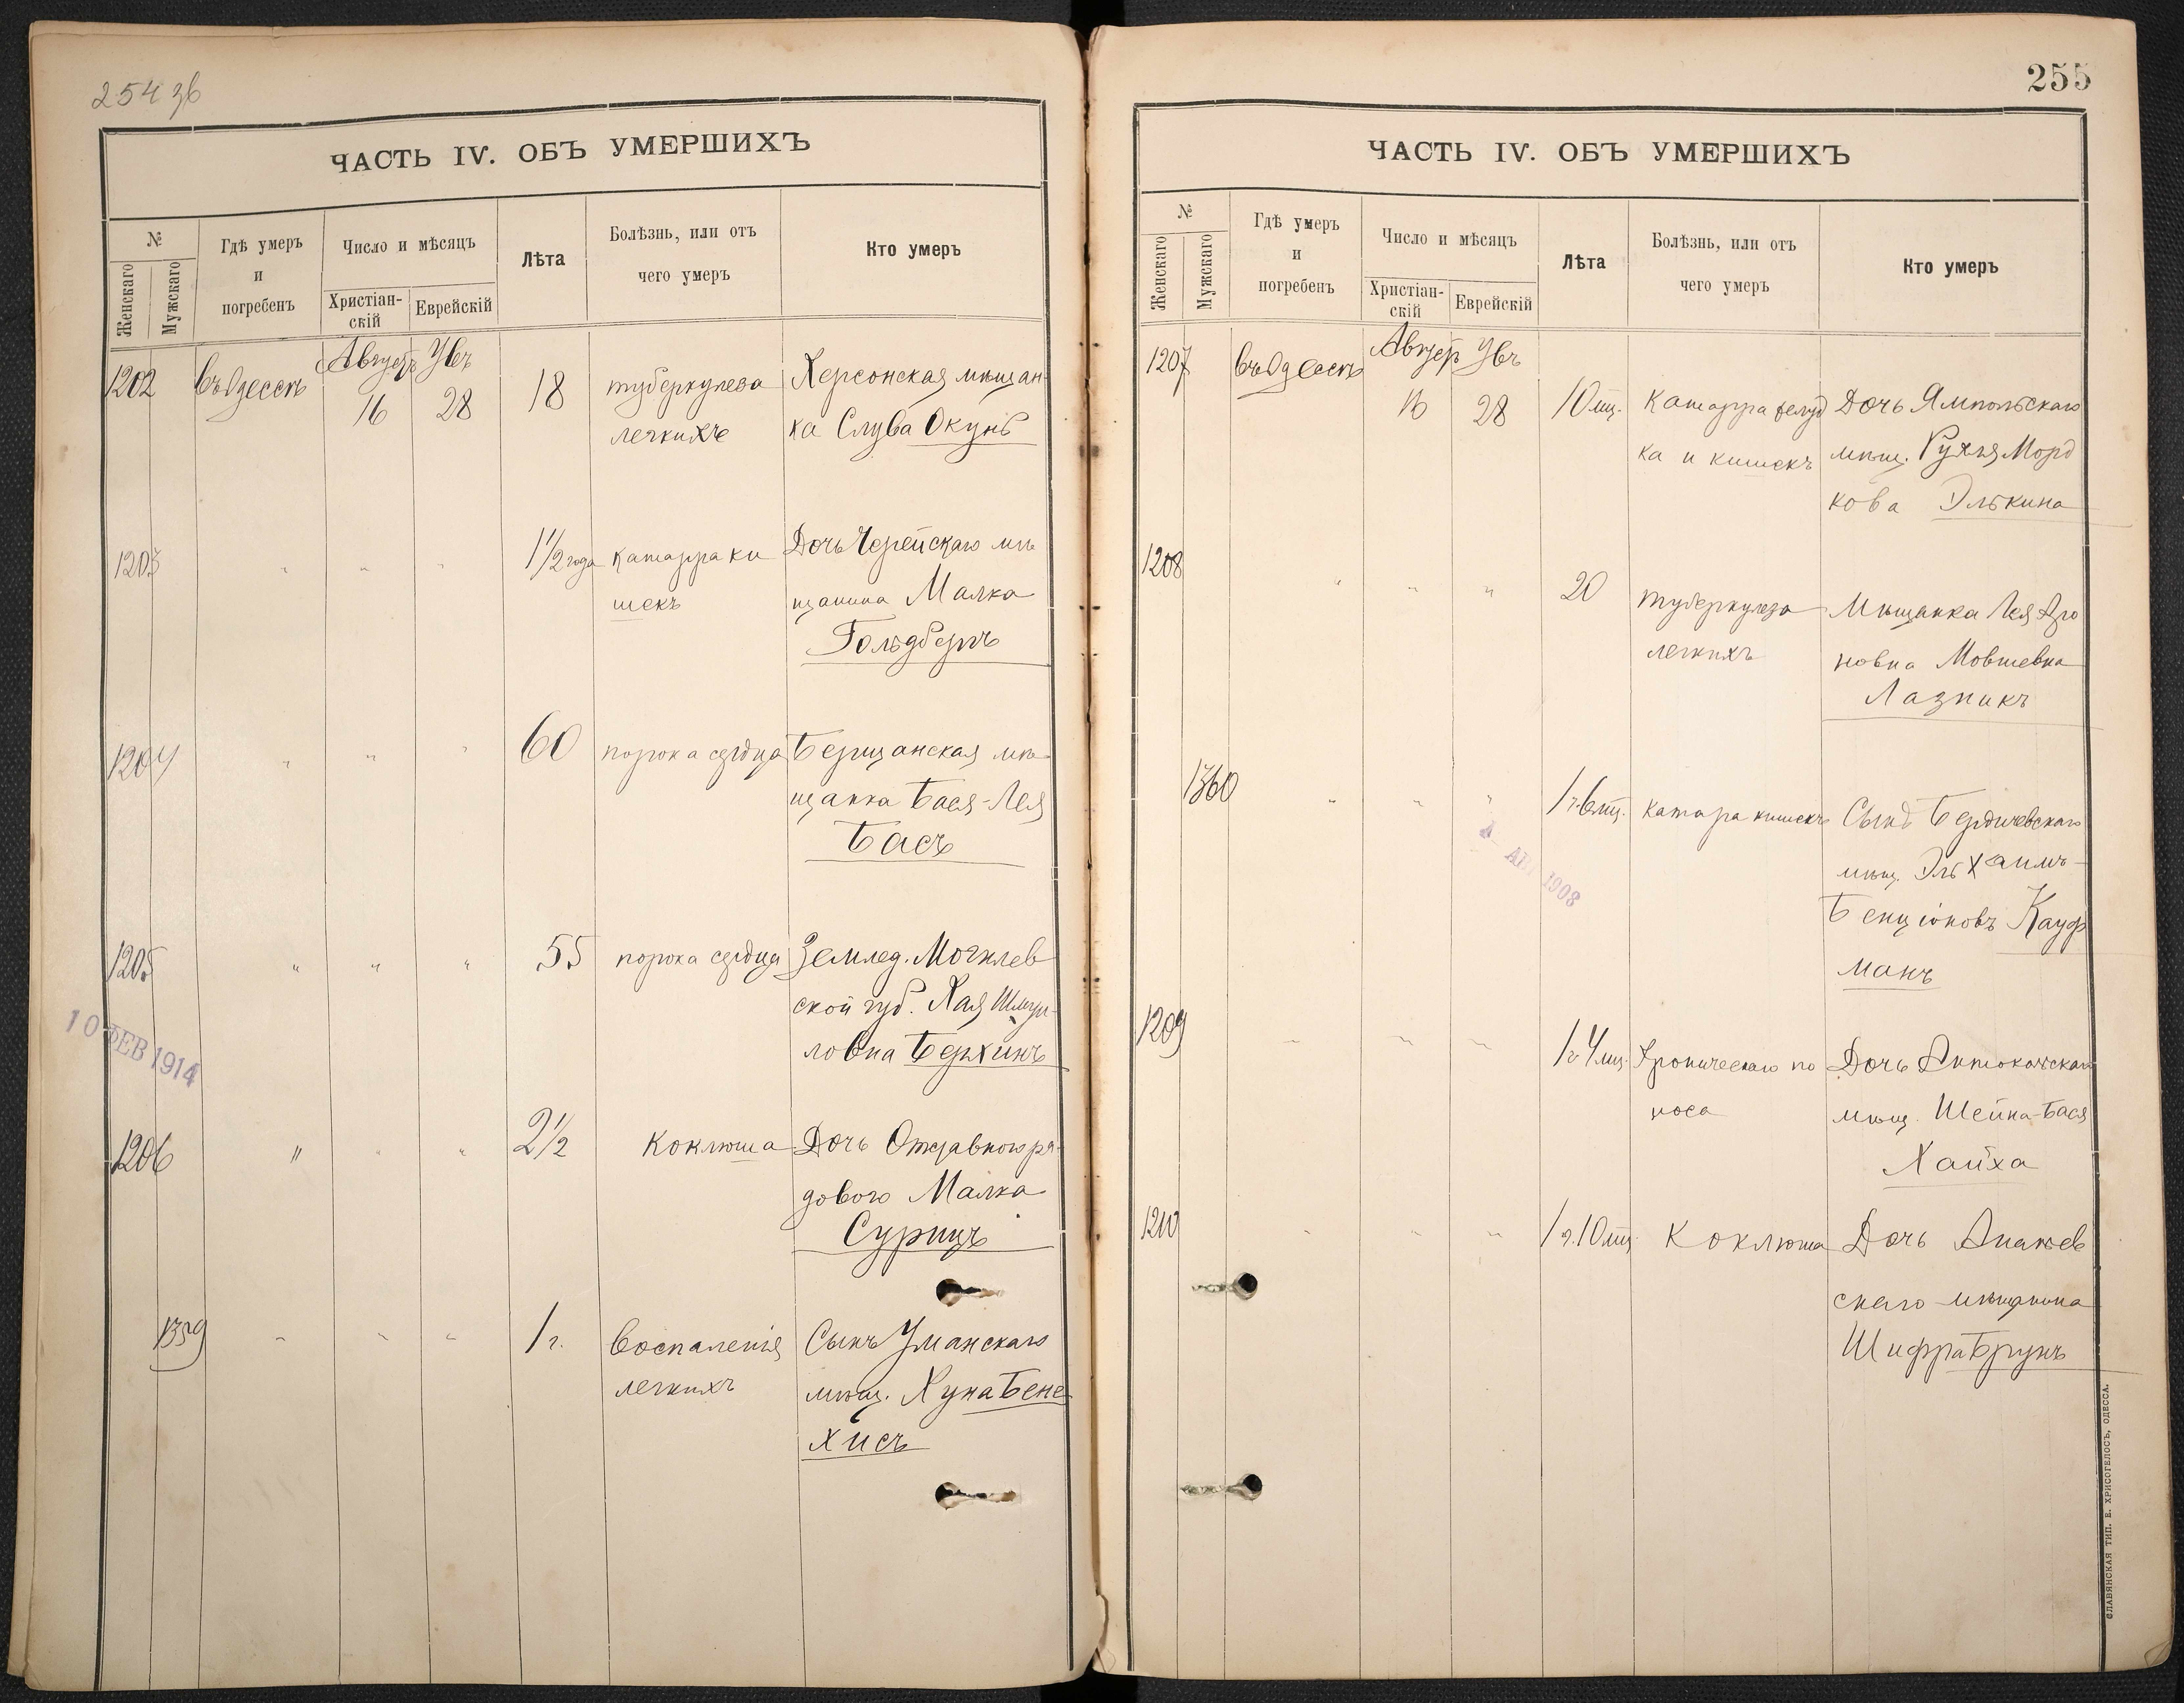 254 зв
ЧАСТЬ IV. ОБЪ УМЕРШИХЪ
№
Женскаго
Мужскаго
Гдѣ умеръ
и
погребенъ
Число и мѣсяцъ
Христіан-
скій
Еврейскій
Лѣта
Болѣзнь, или отъ
чего умеръ
Кто умеръ
1202 въ Одессѣ Август Увъ
16 28 18 туберкулеза Херсонская мѣщан-
легкихъ ка Слува Окунь
1203 " " " 1 1/2 года катарра ки Дочь Черейскаго мѣ
шекъ щанина Малка
Гольдбергъ
1204 " " " 60 порока сердца Бершанская мѣ
щанка Бася-Лея
Басъ
1205 " " " 55 порока сердца Землед. Могилев
ской губ. Хая Шмуи-
ловна Берхинъ
10 ФЕВ 1914
1206 " " " 2 1/2 коклюша Дочь Отставного ря-
дового Малка
Сурицъ
1359 " " " 1 г. Воспаленія Сынъ Уманскаго
легкихъ мѣщ. Хуна Бене
хисъ
255
ЧАСТЬ IV. ОБЪ УМЕРШИХЪ
№
Женскаго
Мужскаго
Гдѣ умеръ
и
погребенъ
Число и мѣсяцъ
Христіан-
скій
Еврейскій
Лѣта
Болѣзнь, или отъ
чего умеръ
Кто умеръ
1207 въ Одессѣ Август Увъ
16 28 10 мц. Катарра желуд Дочь Ямпольскаго
ка и кишекъ мѣщ. Рухля Морд
кова Элькина
1208 " " " 20 туберкулеза Мѣщанка Лея Аро
легкихъ новна Мовшевна
Лазникъ
1360 " " " 1 г. 6 мц. катара кишекъ Сынъ Бердичевскаго
1908
мѣщ. Эль Хаимъ-
Бенціоновъ Кауф
манъ
1209 " " " 1 г 4 мц. Хроническаго по Дочь
носа мѣщ. Шейна-Бася
Хайха
1210 " " " 1 г. 10 мц. Коклюша Дочь Ананьев
скаго мѣщанина
Шифра Брунъ
СЛАВЯНСКАЯ ТИП. Е. ХРИСОГЕЛОСЪ, ОДЕССА.